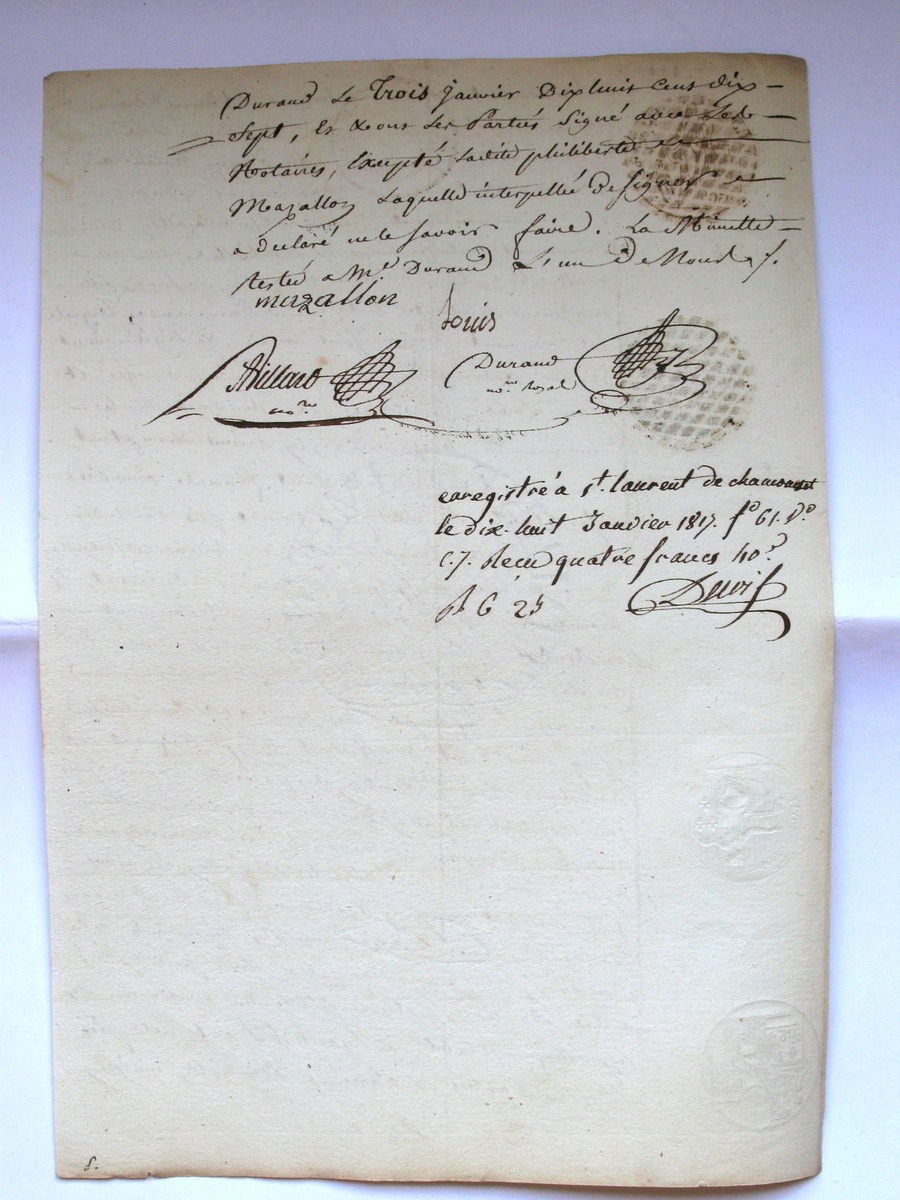 Durand Le Trois Janvier Dix huit Cent dix
Sept, Et Ont Les Parties Signé avec Les
Notaires, Excepté Ladite philiberte
Mazallon Laquelle interpellée de Signer
a déclaré ne le Savoir faire. La Minutte
restée a Me Durand L'un De Nous
mazallon
Louis
Durand
nore
nore royal
enregistré a st. laurent de chamousset
le dix-huit Janvier 1817. fo 61. Vo
C.7. Recu quatre francs 40c
8.